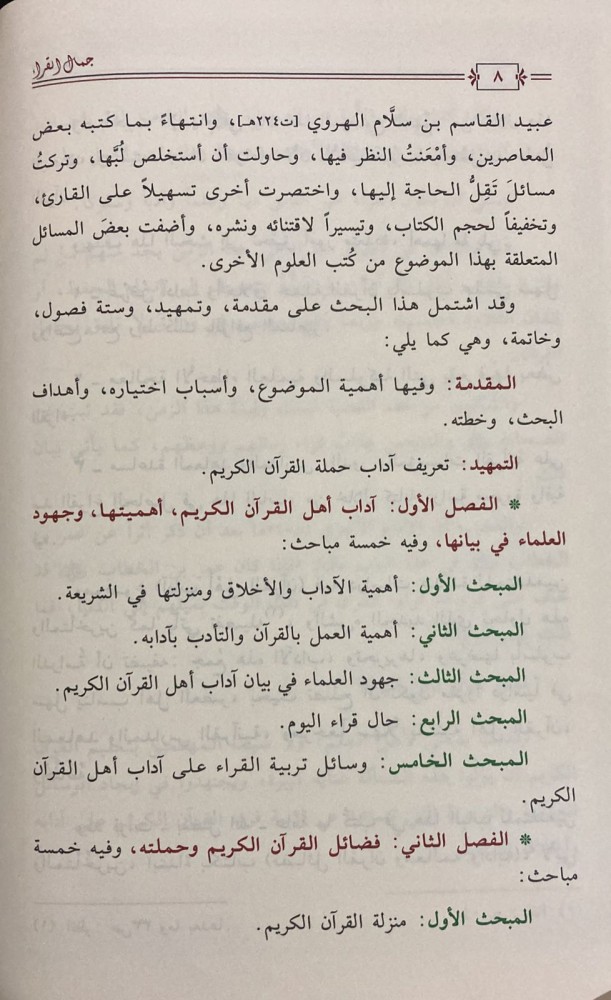 جمال القراء
٨
عبيد القاسم بن سلَّام الهروي [ت٢٢٤هـ]، وانتهاءً بما كتبه بعض
المعاصرين، وأمْعَنتُ النظر فيها، وحاولت أن أستخلص لُبَّها، وتركتُ
مسائلَ تَقِلُّ الحاجة إليها، واختصرت أخرى تسهيلاً على القارئ،
وتخفيفاً لحجم الكتاب، وتيسيراً لاقتنائه ونشره، وأضفت بعضَ المسائل
المتعلقة بهذا الموضوع من كُتب العلوم الأخرى.
وقد اشتمل هذا البحث على مقدمة، وتمهيد، وستة فصول،
وخاتمة، وهي كما يلي:
المقدمة: وفيها أهمية الموضوع، وأسباب اختياره، وأهداف
البحث، وخطته.
التمهيد: تعريف آداب حملة القرآن الكريم.
* الفصل الأول: آداب أهل القرآن الكريم، أهميتها، وجهود
العلماء في بيانها، وفيه خمسة مباحث:
المبحث الأول: أهمية الآداب والأخلاق ومنزلتها في الشريعة.
المبحث الثاني: أهمية العمل بالقرآن والتأدب بآدابه.
المبحث الثالث: جهود العلماء في بيان آداب أهل القرآن الكريم.
المبحث الرابع: حال قراء اليوم.
المبحث الخامس: وسائل تربية القراء على آداب أهل القرآن
الكريم.
* الفصل الثاني: فضائل القرآن الكريم وحملته، وفيه خمسة
مباحث:
المبحث الأول: منزلة القرآن الكريم.